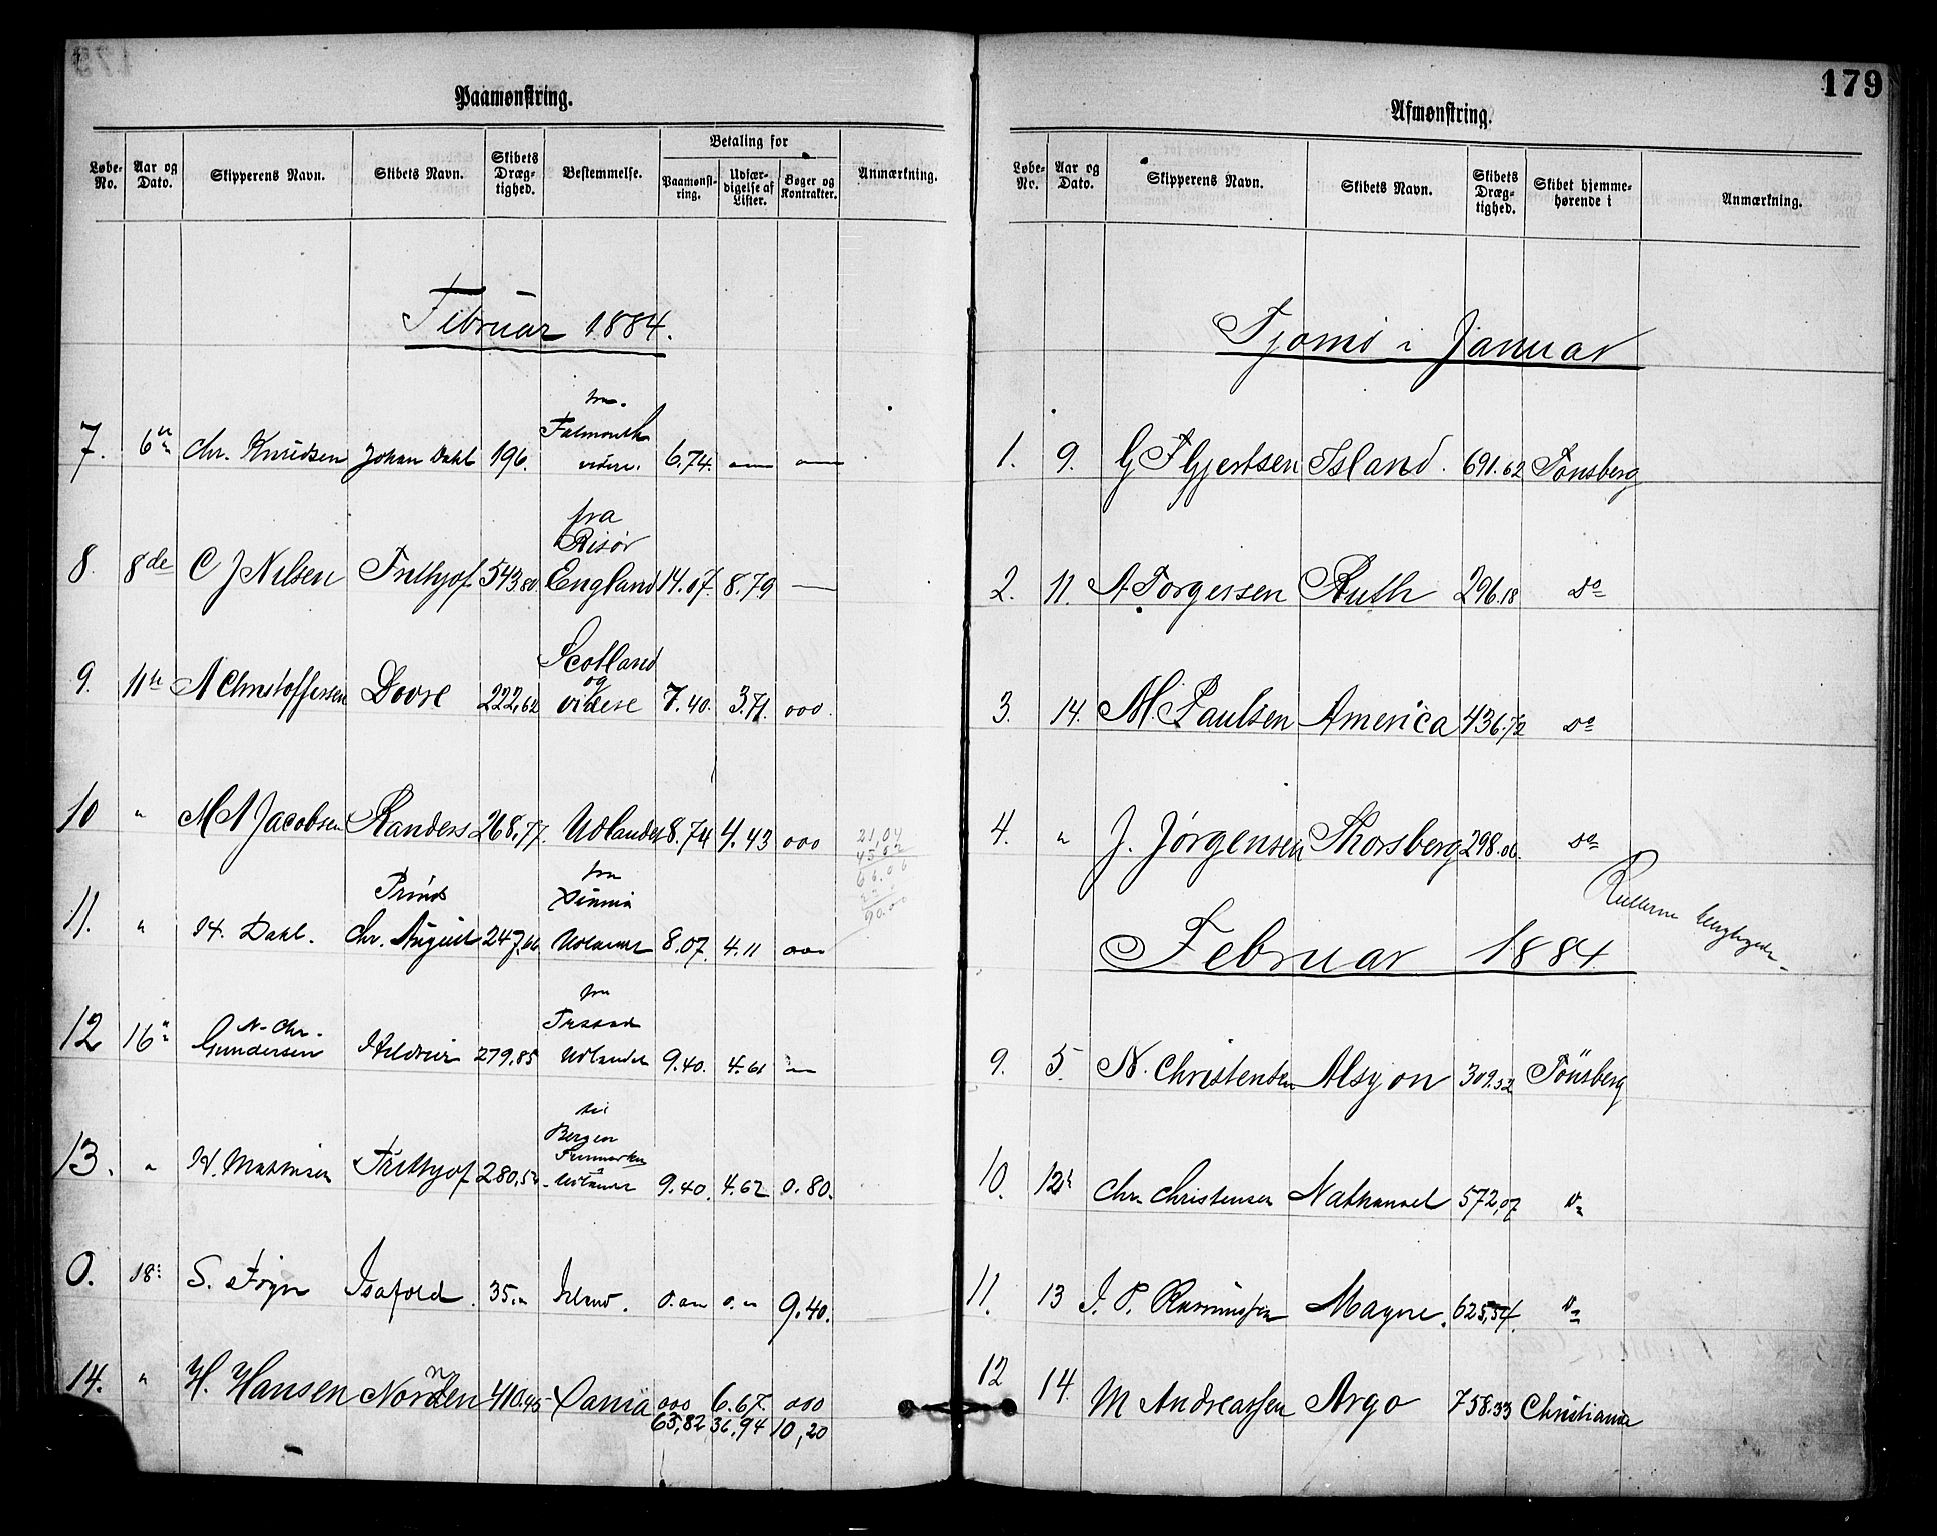 179
Paamønstring.
Løbe-No. Aar og Dato. Skipperens Navn. Skibets Navn. Skibets Dræg-tighed. Bestemmelse. Betaling for Paamønst-ring. Udfær-digelse af Lister. Bøger og Kontrakter. Anmærkning.
Februar 1884.
7. 6 Chr. Knudsen Johan Dahl 196. fra Falmouth videre. 6.74.
8. 8de C J Nilsen Frithjof 543.80 fra Risør England 14.07. 8.79 —
9. 11te A Christoffersen Dovre 222,62 Scotland og videre 7.40. 3.71. ooo
10 " M A Jacobsen Randers 268,77. Udlandet 8.74 4.43 ooo
11. " H. Dahl. Prinds Chr. August 247,66 fra Udlandet 8.07. 4.11 ooo
12 16 N. Chr. Gundersen 279,85 fra Udlandet 9.40. 4.61
13. " H. Mathisen Frithjof 280,52 til Bergen Finmarken Udlandet 9.40. 4.62 0.80.
0. 18 S. Føyn Isafold. 35. Island. 0. 0. 9.40.
14. " H. Hansen Norden 410.45 Xania ooo 6.67. ooo
63,82 36,94 10,20
Afmønstring.
Løbe-No. Aar og Dato. Skipperens Navn. Skibets Navn. Skibets Dræg-tighed. Skibet hjemme-hørende i Anmærkning.
Tjømø i Januar
1. 9. G F Gjertsen Island. 691.62 Tønsberg
2. 11. A Torgersen Ruth 296.18 Do
3. 14. M. Paulsen America 436.72 Do
4. " J. Jørgensen Thorsberg 298.06. Do
Rullerne
Februar 1884
9. 5. N. Christensen Alsyon 309.52 Tönsberg
10. 12 Chr Christensen Nathanael 572,07 Do
11. 13 J. P. Rasmussen Magne. 625,54. Do
12 14. M Andreassen Argo 758.33 Christiania